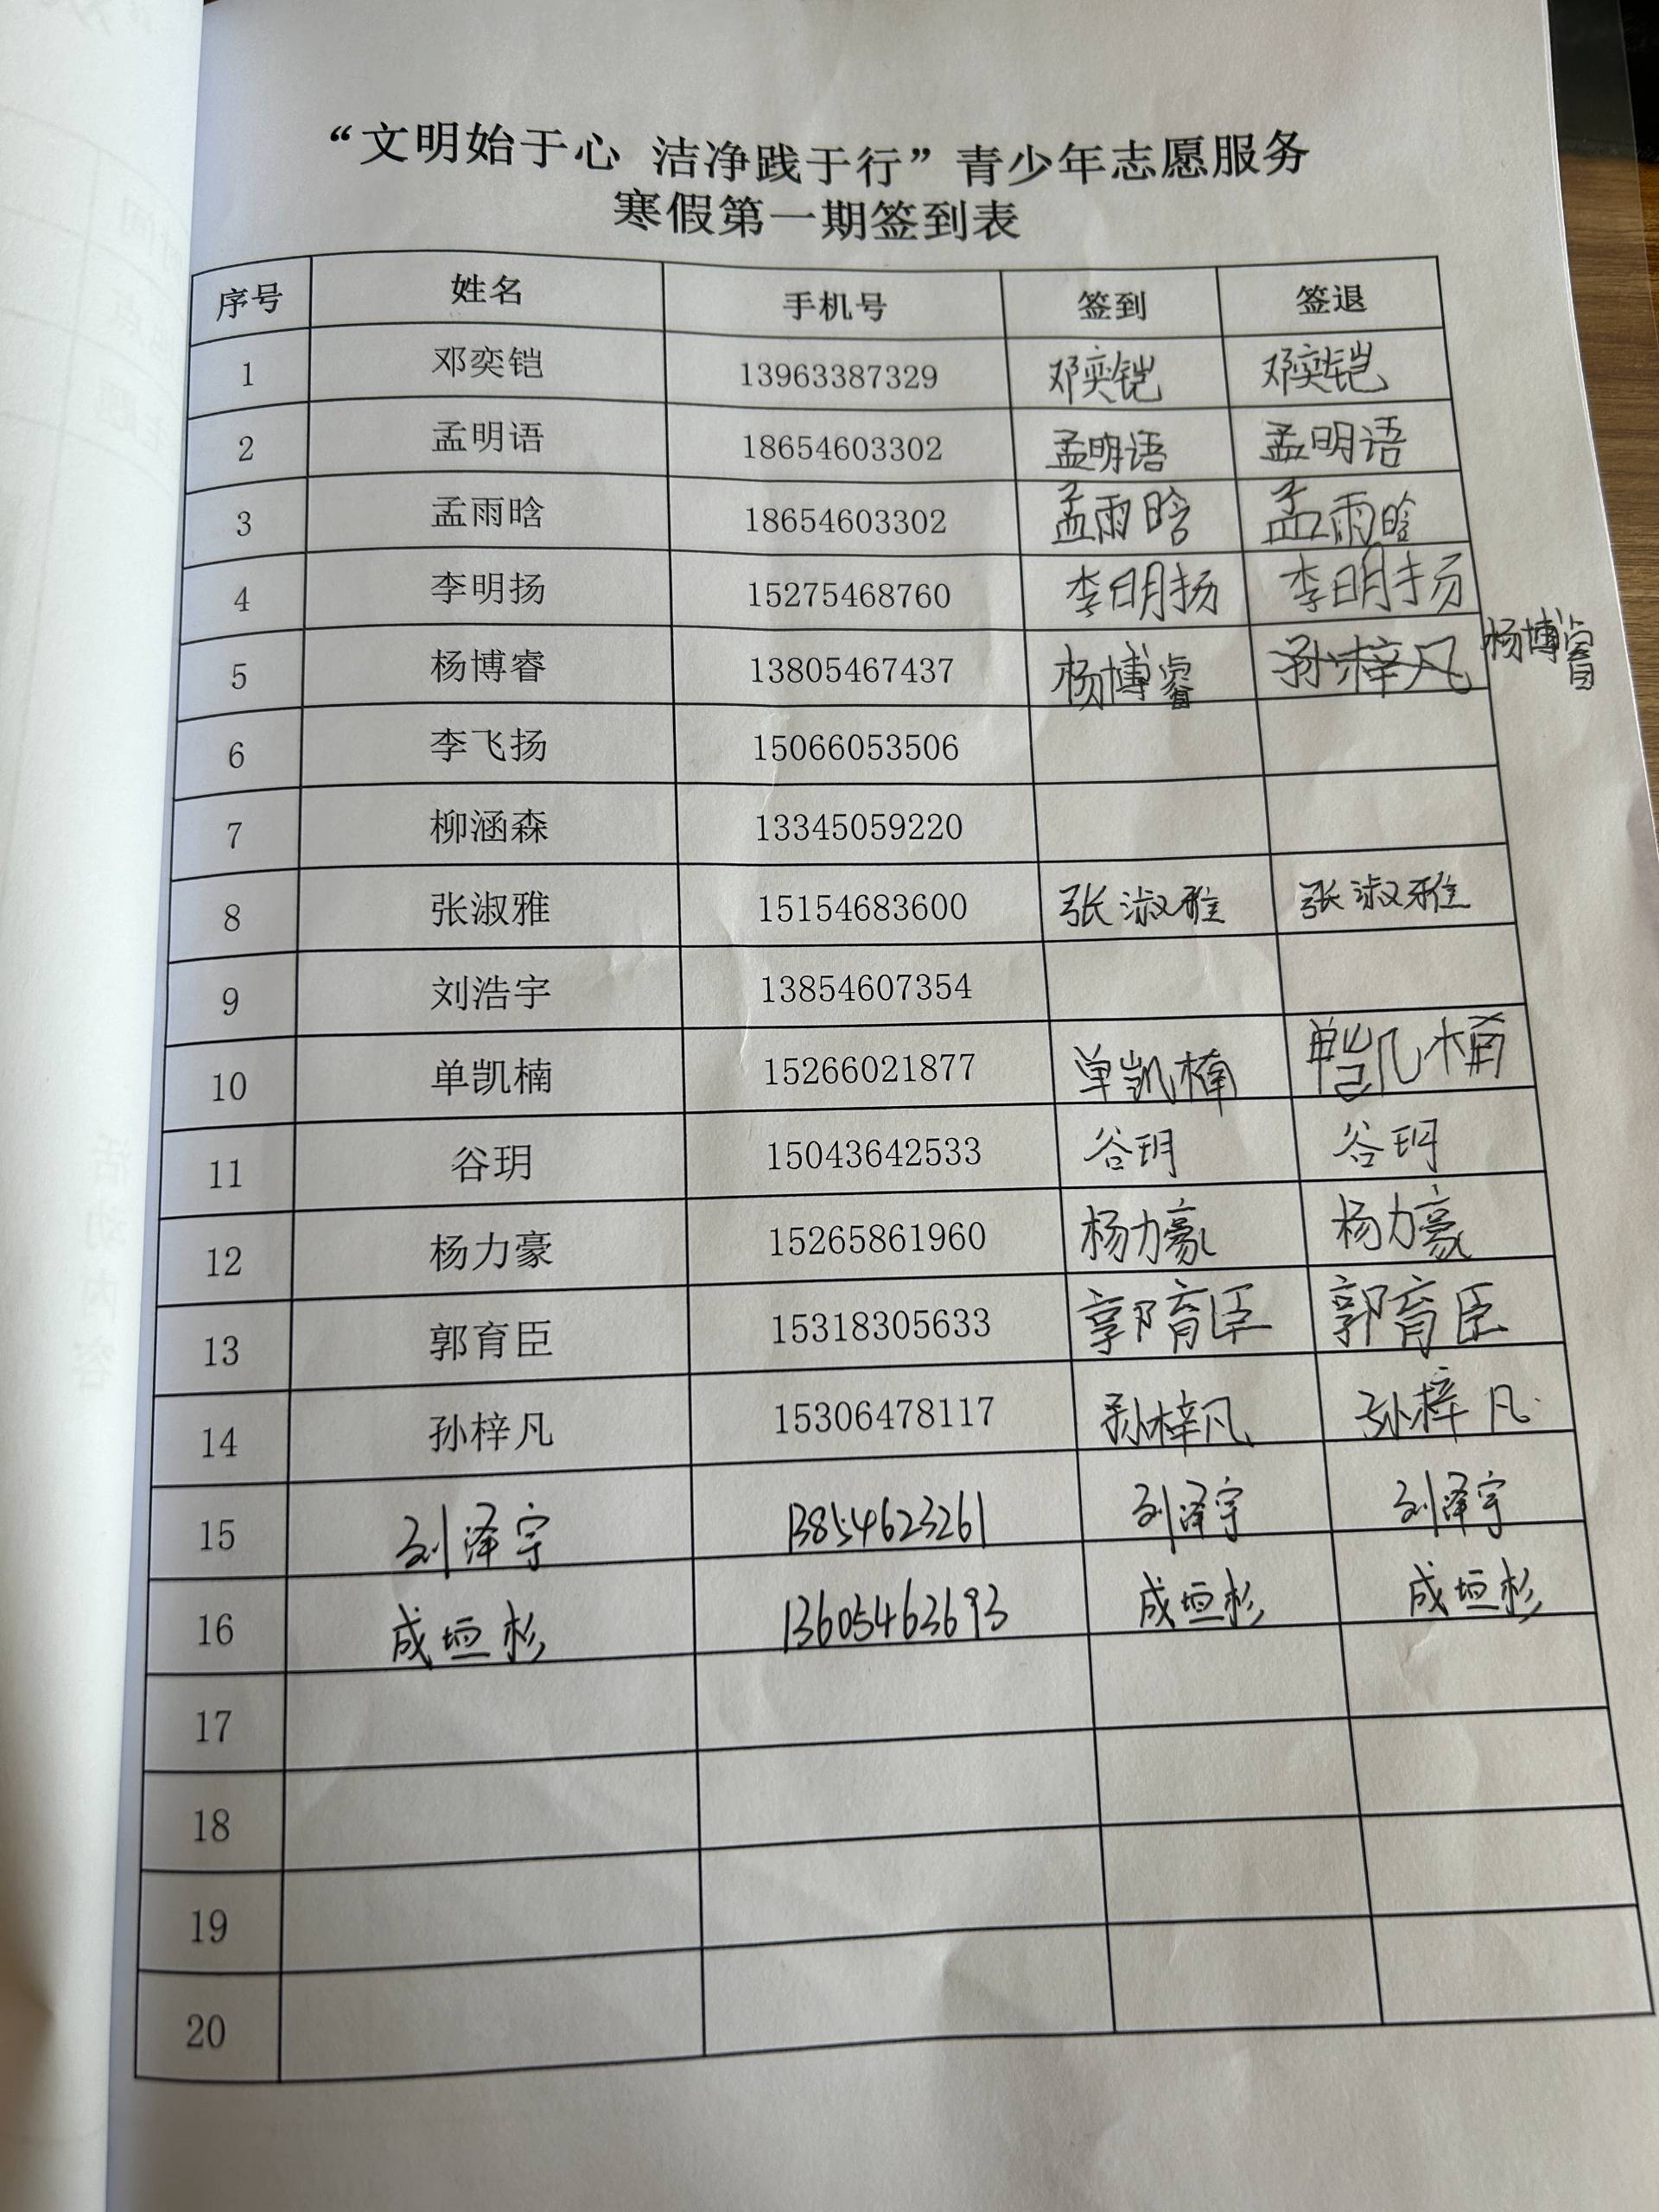 “文明始于心 洁净践于行”青少年志愿服务
寒假第一期签到表
序号 姓名 手机号 签到 签退
1 邓奕铠 13963387329 邓奕铠 邓奕铠
2 孟明语 18654603302 孟明语 孟明语
3 孟雨晗 18654603302 孟雨晗 孟雨晗
4 李明扬 15275468760 李明扬 李明扬
5 杨博睿 13805467437 杨博睿 孙梓凡 杨博睿
6 李飞扬 15066053506
7 柳涵森 13345059220
8 张淑雅 15154683600 张淑雅 张淑雅
9 刘浩宇 13854607354
10 单凯楠 15266021877 单凯楠 单凯楠
11 谷玥 15043642533 谷玥 谷玥
12 杨力豪 15265861960 杨力豪 杨力豪
13 郭育臣 15318305633 郭育臣 郭育臣
14 孙梓凡 15306478117 孙梓凡 孙梓凡
15 刘泽宇 13854623261 刘泽宇 刘泽宇
16 成垣杉 13605463693 成垣杉 成垣杉
17
18
19
20